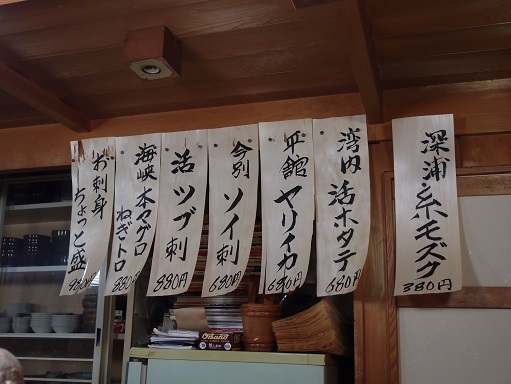 深浦 糸モズク
380円
湾内 活ホタテ
680円
平舘 ヤリイカ
680円
今別 ソイ刺
680円
活ツブ刺
880円
海峡 本マグロ
ねぎトロ
880円
お刺身
ちょっと盛
980円